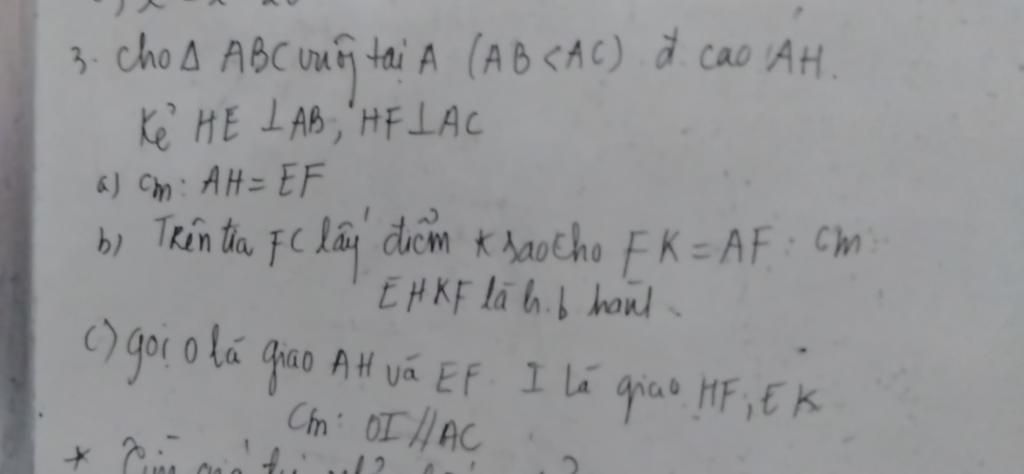 3. Cho Δ ABC vuông tại A (AB < AC) đ. cao AH.
Kẻ HE ⊥ AB, HF ⊥ AC
a) Cm: AH = EF
b) Trên tia FC lấy điểm K sao cho FK = AF. Cm:
EHKF là h.b hành.
c) gọi O là giao AH và EF. I là giao HF, EK
Cm: OI // AC